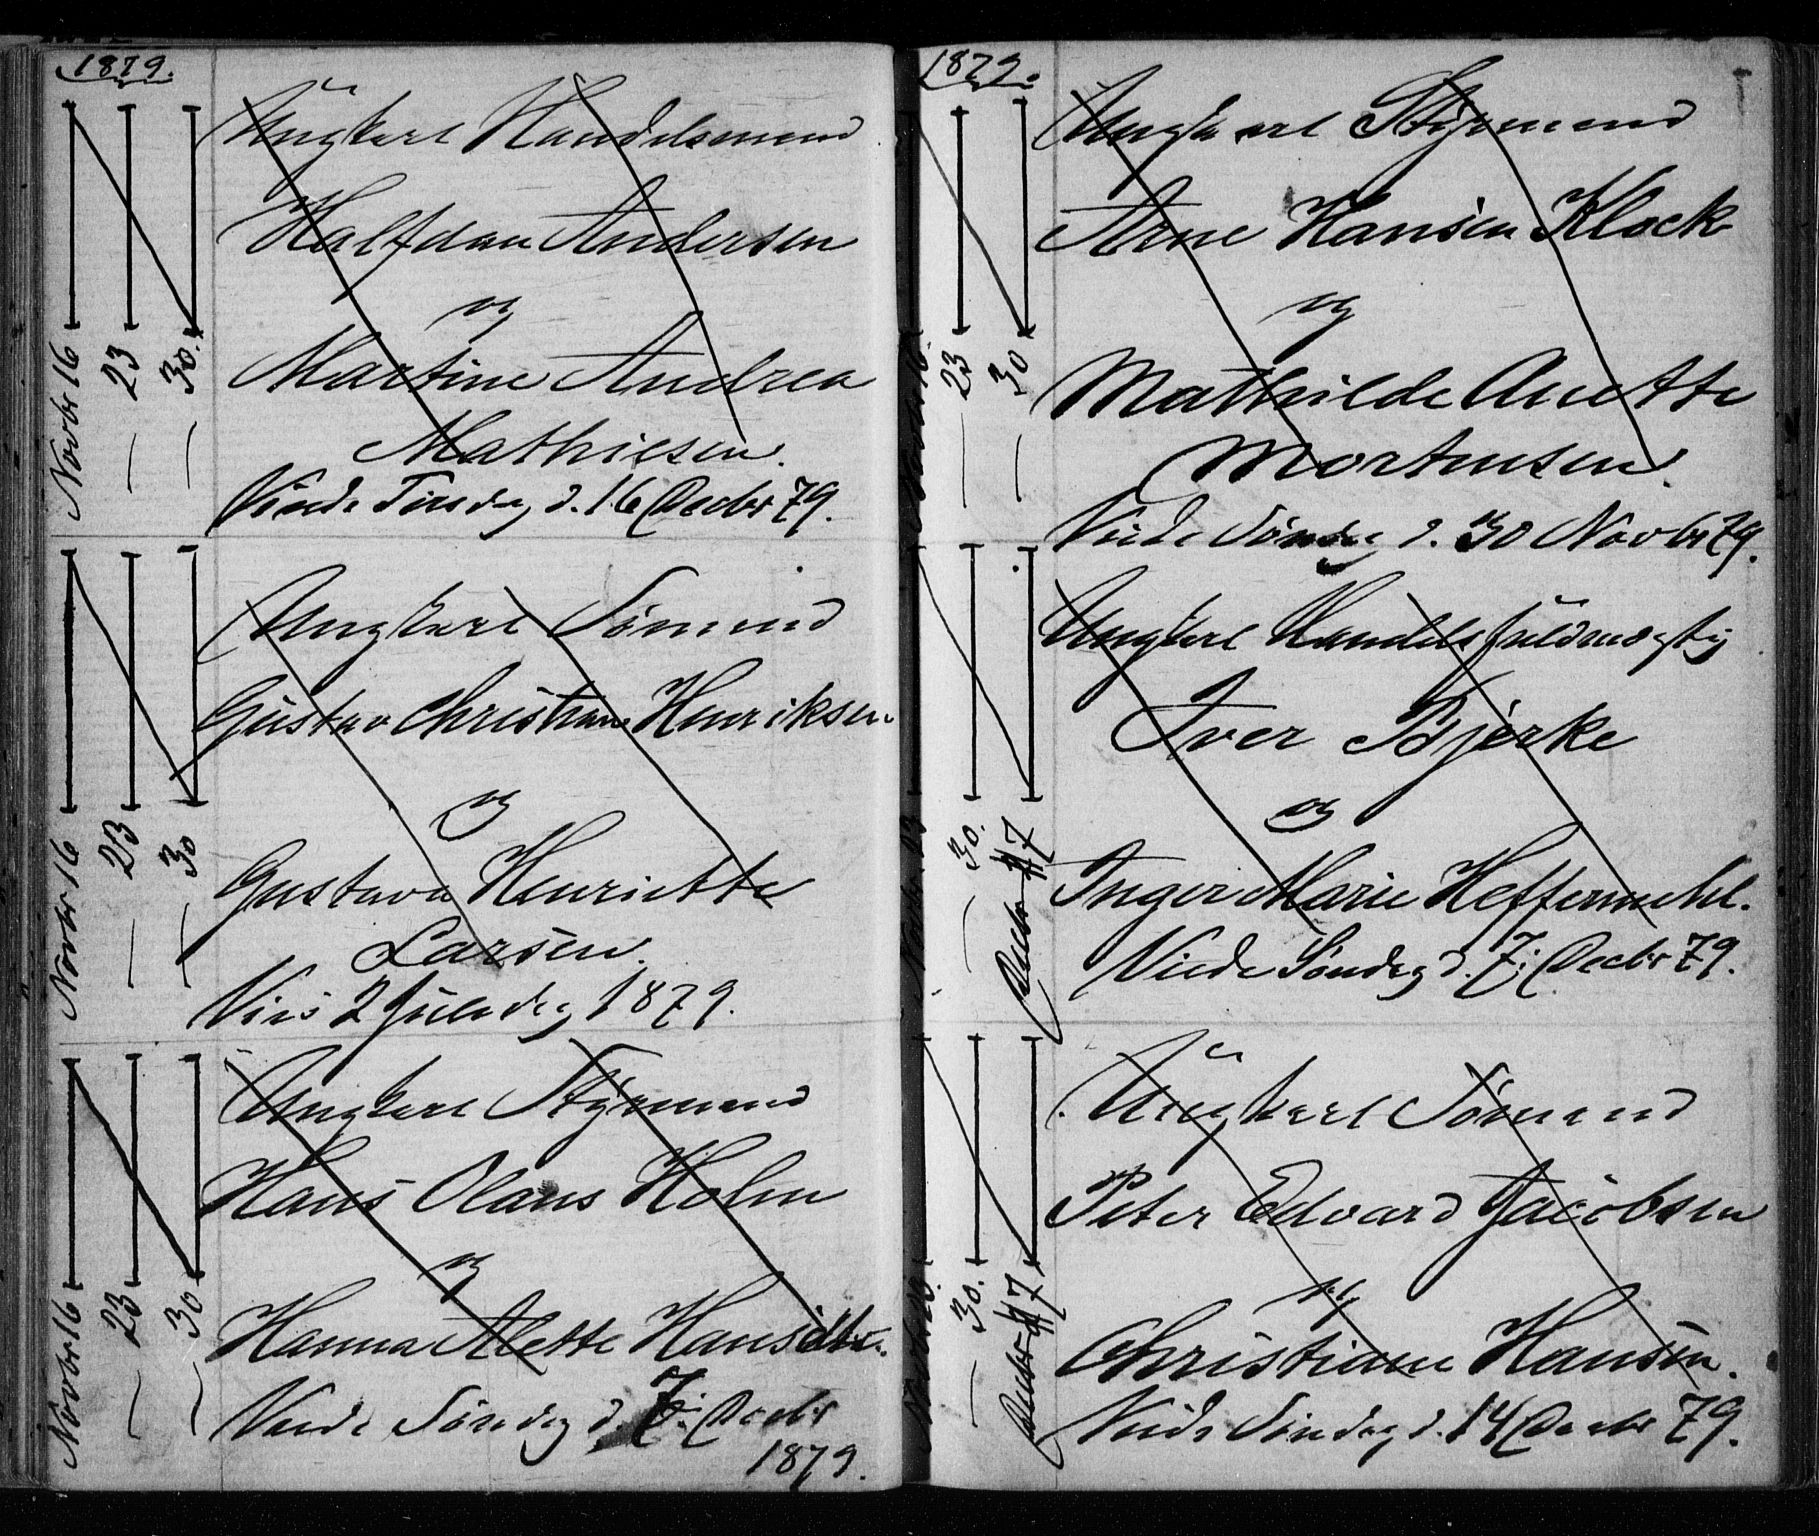 1879.
Novbr 16
— 23
— 30.
Ungkarl Handelsmand
Halfdan Andersen
og
Martine Andrea
Mathiesen.
Viede Tirsdag d. 16 Decbr 79.
Novbr 16
— 23
— 30
Ungkarl Sømand
Gustav Christian Henriksen
og
Gustava Henriette
Larsen.
Vies 2 Juledag 1879.
Novbr 16
— 23
— 30
Ungkarl Styrmand
Hans Olaus Holm
og
Hanna Alette
Viede Søndag d. 7: Decbr
1879.
1879.
Novbr 16.
— 23
— 30
Ungkarl Styrmand
Arne Hansen Klock
og
Mathilde Anette
Mortensen.
Viede Søndag d. 30 Novbr 79.
— 30.
Decbr 7
Ungkarl Handelsfuldmægtig
Iver Bjerke
og
Inger Marie Heffermehl.
Viede Søndag d. 7: Decbr 79.
— 30.
Decbr 7
Ungkarl Sømand
Peter Edvard Jacobsen
og
Christiane Hansen.
Viede Søndag d. 14 Decbr 79.